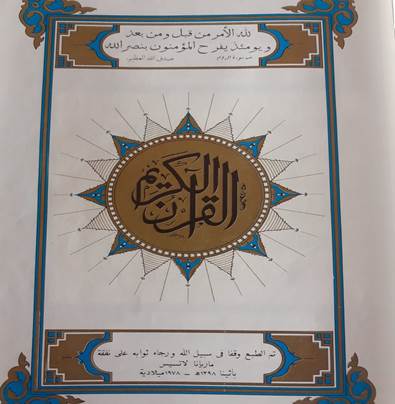 لله الأمر من قبل ومن بعد
ويومئذ يفرح المؤمنون بنصر الله
صدق الله العظيم
سورة الروم
القرآن الكريم
تم الطبع وقفا فى سبيل الله ورجاء ثوابه على نفقة
ماريانا لاتسيس
بأثينا ١٣٩٨ه – ١٩٧٨ ميلادية